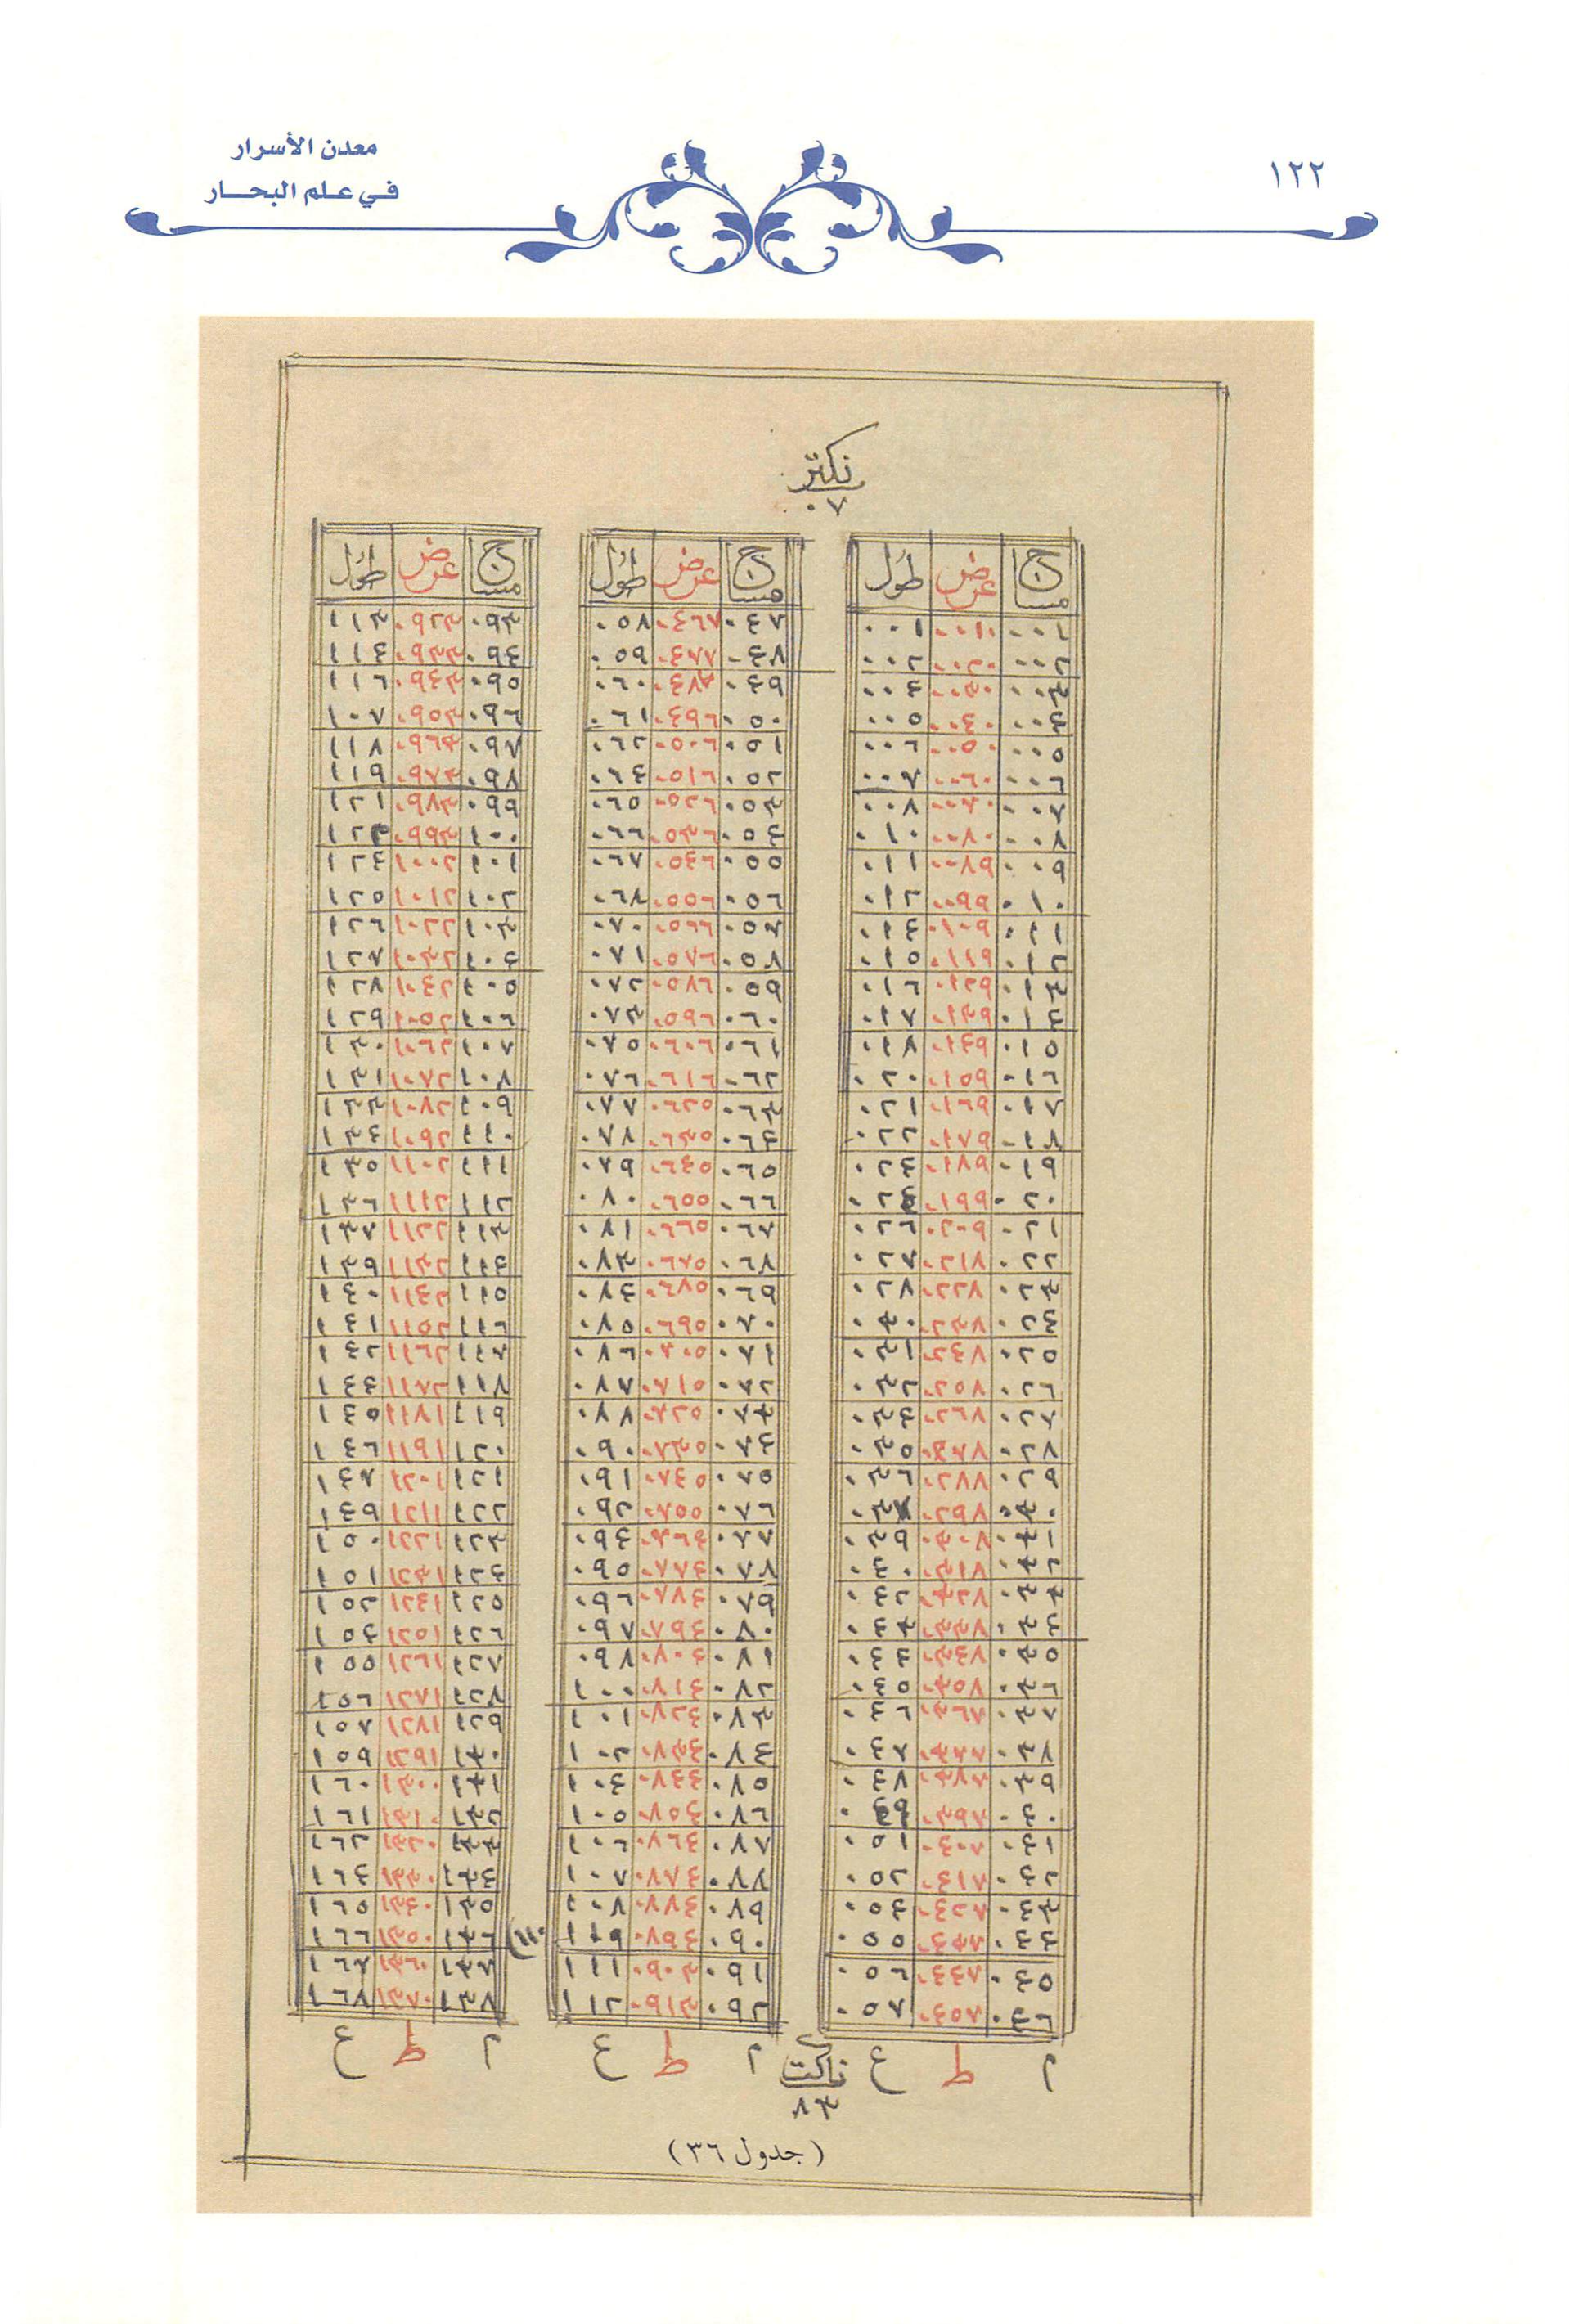 ١٢٢
معدن الأسرار
في علم البحار
نكتر
٠٧
مساج عرض طول
٠٠١ ٠٠١٠ ٠٠١
٠٠٢ ٠٠٢٠ ٠٠٢
٠٠٣ ٠٠٣٠ ٠٠٤
٠٠٤ ٠٠٤٠ ٠٠٥
٠٠٥ ٠٠٥٠ ٠٠٦
٠٠٦ ٠٠٦٠ ٠٠٧
٠٠٧ ٠٠٧٠ ٠٠٨
٠٠٨ ٠٠٨٠ ٠١٠
٠٠٩ ٠٠٨٩ ٠١١
٠١٠ ٠٠٩٩ ٠١٢
٠١١ ٠١٠٩ ٠١٤
٠١٢ ٠١١٩ ٠١٥
٠١٣ ٠١٢٩ ٠١٦
٠١٤ ٠١٣٩ ٠١٧
٠١٥ ٠١٤٩ ٠١٨
٠١٦ ٠١٥٩ ٠٢٠
٠١٧ ٠١٦٩ ٠٢١
٠١٨ ٠١٧٩ ٠٢٢
٠١٩ ٠١٨٩ ٠٢٤
٠٢٠ ٠١٩٩ ٠٢٤
٠٢١ ٠٢٠٩ ٠٢٦
٠٢٢ ٠٢١٨ ٠٢٧
٠٢٣ ٠٢٢٨ ٠٢٨
٠٢٤ ٠٢٣٨ ٠٣٠
٠٢٥ ٠٢٤٨ ٠٣١
٠٢٦ ٠٢٥٨ ٠٣٢
٠٢٧ ٠٢٦٨ ٠٣٤
٠٢٨ ٠٢٧٨ ٠٣٥
٠٢٩ ٠٢٨٨ ٠٣٦
٠٣٠ ٠٢٩٨ ٠٣٧
٠٣١ ٠٣٠٨ ٠٣٩
٠٣٢ ٠٣١٨ ٠٤٠
٠٣٣ ٠٣٢٨ ٠٤٢
٠٣٤ ٠٣٣٨ ٠٤٣
٠٣٥ ٠٣٤٨ ٠٤٤
٠٣٦ ٠٣٥٨ ٠٤٥
٠٣٧ ٠٣٦٧ ٠٤٦
٠٣٨ ٠٣٧٧ ٠٤٧
٠٣٩ ٠٣٨٧ ٠٤٨
٠٤٠ ٠٣٩٧ ٠٤٩
٠٤١ ٠٤٠٧ ٠٥١
٠٤٢ ٠٤١٧ ٠٥٢
٠٤٣ ٠٤٢٧ ٠٥٤
٠٤٤ ٠٤٣٧ ٠٥٥
٠٤٥ ٠٤٤٧ ٠٥٦
٠٤٦ ٠٤٥٧ ٠٥٧
م ط ع
مساج عرض طول
٠٤٧ ٠٤٦٧ ٠٥٨
٠٤٨ ٠٤٧٧ ٠٥٩
٠٤٩ ٠٤٨٧ ٠٦٠
٠٥٠ ٠٤٩٦ ٠٦١
٠٥١ ٠٥٠٦ ٠٦٢
٠٥٢ ٠٥١٦ ٠٦٤
٠٥٣ ٠٥٢٦ ٠٦٥
٠٥٤ ٠٥٣٦ ٠٦٦
٠٥٥ ٠٥٤٦ ٠٦٧
٠٥٦ ٠٥٥٦ ٠٦٨
٠٥٧ ٠٥٦٦ ٠٧٠
٠٥٨ ٠٥٧٦ ٠٧١
٠٥٩ ٠٥٨٦ ٠٧٢
٠٦٠ ٠٥٩٦ ٠٧٣
٠٦١ ٠٦٠٦ ٠٧٥
٠٦٢ ٠٦١٦ ٠٧٦
٠٦٣ ٠٦٢٥ ٠٧٧
٠٦٤ ٠٦٣٥ ٠٧٨
٠٦٥ ٠٦٤٥ ٠٧٩
٠٦٦ ٠٦٥٥ ٠٨٠
٠٦٧ ٠٦٦٥ ٠٨١
٠٦٨ ٠٦٧٥ ٠٨٣
٠٦٩ ٠٦٨٥ ٠٨٤
٠٧٠ ٠٦٩٥ ٠٨٥
٠٧١ ٠٧٠٥ ٠٨٦
٠٧٢ ٠٧١٥ ٠٨٧
٠٧٣ ٠٧٢٥ ٠٨٨
٠٧٤ ٠٧٣٥ ٠٩٠
٠٧٥ ٠٧٤٥ ٠٩١
٠٧٦ ٠٧٥٥ ٠٩٢
٠٧٧ ٠٧٦٤ ٠٩٤
٠٧٨ ٠٧٧٤ ٠٩٥
٠٧٩ ٠٧٨٤ ٠٩٦
٠٨٠ ٠٧٩٤ ٠٩٧
٠٨١ ٠٨٠٤ ٠٩٨
٠٨٢ ٠٨١٤ ١٠٠
٠٨٣ ٠٨٢٤ ١٠١
٠٨٤ ٠٨٣٤ ١٠٢
٠٨٥ ٠٨٤٤ ١٠٤
٠٨٦ ٠٨٥٤ ١٠٥
٠٨٧ ٠٨٦٤ ١٠٦
٠٨٨ ٠٨٧٤ ١٠٧
٠٨٩ ٠٨٨٤ ١٠٨
٠٩٠ ٠٨٩٤ ١٠٩ ١١٠
٠٩١ ٠٩٠٣ ١١١
٠٩٢ ٠٩١٣ ١١٢
م ط ع
مساج عرض طول
٠٩٣ ٠٩٢٣ ١١٣
٠٩٤ ٠٩٣٣ ١١٤
٠٩٥ ٠٩٤٣ ١١٦
٠٩٦ ٠٩٥٣ ١٠٧
٠٩٧ ٠٩٦٣ ١١٨
٠٩٨ ٠٩٧٣ ١١٩
٠٩٩ ٠٩٨٣ ١٢١
١٠٠ ٠٩٩٣ ١٢٢
١٠١ ١٠٠٢ ١٢٤
١٠٢ ١٠١٢ ١٢٥
١٠٣ ١٠٢٢ ١٢٦
١٠٤ ١٠٣٢ ١٢٧
١٠٥ ١٠٤٢ ١٢٨
١٠٦ ١٠٥٢ ١٢٩
١٠٧ ١٠٦٢ ١٣٠
١٠٨ ١٠٧٢ ١٣١
١٠٩ ١٠٨٢ ١٣٣
١١٠ ١٠٩٢ ١٣٤
١١١ ١١٠٢ ١٣٥
١١٢ ١١١٢ ١٣٦
١١٣ ١١٢٢ ١٣٧
١١٤ ١١٣٢ ١٣٩
١١٥ ١١٤٢ ١٤٠
١١٦ ١١٥٢ ١٤١
١١٧ ١١٦٢ ١٤٢
١١٨ ١١٧٢ ١٤٤
١١٩ ١١٨١ ١٤٥
١٢٠ ١١٩١ ١٤٦
١٢١ ١٢٠١ ١٤٧
١٢٢ ١٢١١ ١٤٩
١٢٣ ١٢٢١ ١٥٠
١٢٤ ١٢٣١ ١٥١
١٢٥ ١٢٤١ ١٥٢
١٢٦ ١٢٥١ ١٥٤
١٢٧ ١٢٦١ ١٥٥
١٢٨ ١٢٧١ ١٥٦
١٢٩ ١٢٨١ ١٥٨
١٣٠ ١٢٩١ ١٥٩
١٣١ ١٣٠٠ ١٦٠
١٣٢ ١٣١٠ ١٦١
١٣٣ ١٣٢٠ ١٦٢
١٣٤ ١٣٣٠ ١٦٤
١٣٥ ١٣٤٠ ١٦٥
١٣٦ ١٣٥٠ ١٦٦
١٣٧ ١٣٦٠ ١٦٧
١٣٨ ١٣٧٠ ١٦٨
م ط ع
٨٣
(جدول ٣٦)